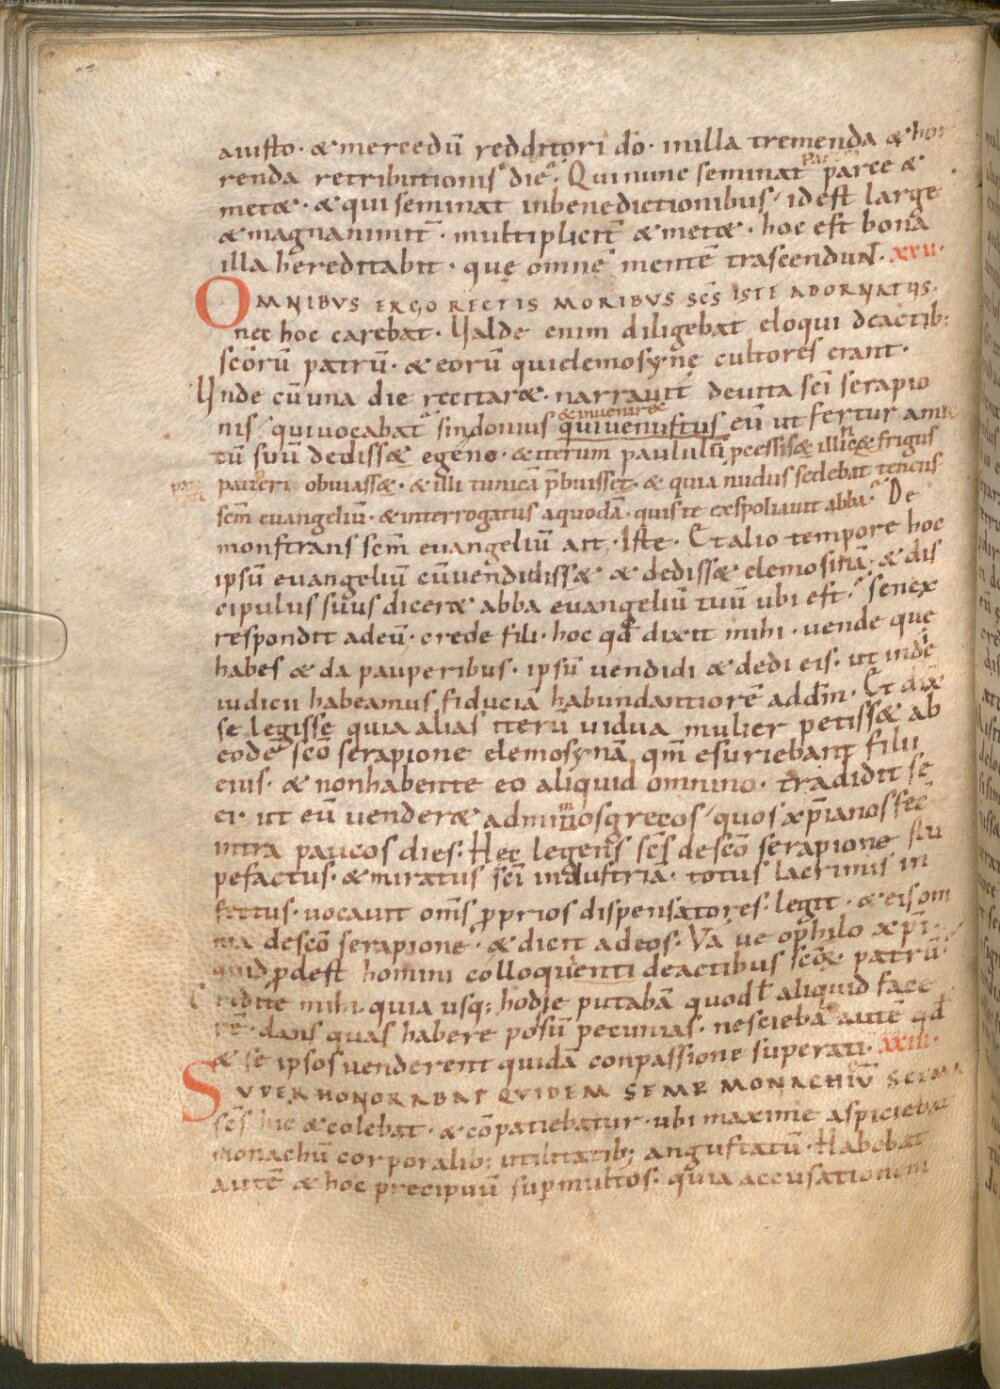 aiusto· & mercedū redditori dō· in illa tremenda & hor
renda retributionis die· Qui nunc seminat parce parce &
met&· & qui seminat in benedictionibus/ id est large
& magnanimit̄· multiplicit̄ & met&· hoc est bona
illa hereditabit· quę omnē mentē trascendunt· xxii·
OMNIBUS ERGO RECTIS MORIBUS SCS ISTE ADORNATUS·
nec hoc carebat· Valde enim diligebat eloqui de actib;
scōrū patrū· & eorū qui elemosynę cultores erant·
Unde cū una die recitar&· narravit de vita scī serapio
nis/ qui vocabat̄ sindonius & invenir& qui venustus eū ut fertur amic
tū suū dediss& egeno· & iterum paululū pcessiss& illic & frigus
patienti pauperi obviass&· & illi tunicā p̄buisset· & quia nudus sedebat tenens
scm̄ evangeliū· & interrogatus a quodā· quis te exspoliavit abba· De
monstrans scm̄ evangeliū ait· Iste· Et alio tempore hoc
ipsū evangeliū cū vendidiss& & dediss& elemosinā· & dis
cipulus suus dicer& abba evangeliū tuū ubi est· senex
respondit ad eū· crede fili· hoc qđ dixit mihi· vende quę
habes & da pauperibus· ipsū vendidi & dedi eis· ut in die
iudicii habeamus fiduciā habundantiorē ad dm̄· Et dix&
se legisse quia alias iterū vidua mulier petiss& ab
eodē scō serapione elemosynā qm̄ esuriebant filii
eius· & non habente eo aliquid omnino· tradidit se
ei· ut eū vender& ad mimos grecos/ quos xp̄ianos fec̄
intra paucos dies· Hec legens scs̄ de scō serapione stu
pefactus· & miratus scī industria· totus lacrimis in
fectus· vocavit om̄s pprios dispensatores· legit· & eis om
nia de scō serapione· & dicit ad eos· Va ve o philo xp̄i·
quid pdest homini colloquenti de actibus scōr patrū·
Credite mihi· quia usq; hodie putabā quod aliquid face
rē· dans quas habere posū pecunias· nesciebā autē qđ
& se ipsos venderent quidā conpassione superati· xxiii·
SUPER HONORABAT QUIDEM SEMP MONACHIŪ
scs̄ hic & colebat· & cōpatiebatur· ubi maxime aspiciebat
monachū corporalib; utilitatib; angustatū· Habebat
autē & hoc precipuū sup multos· quia accusationem